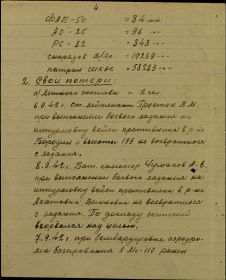 4.
ФАБ-50 = 84 шт.
АО-25 = 96 -"-
РС-82 = 343 -"-
снарядов = 19239 -"-
патрон шкас = 58283 -"-
2. Свои потери:
а) Летного состава - 2 чел.
6.9.42г. ст. лейтенант В.М.
при выполнении боевого задания на
штурмовку войск противника в р-не
Бородин и высоты 133 не возвратился
с задания.
8.9.42г. Бат. комиссар Чумаков А.Е.
при выполнении боевого задания на
штурмовку войск противника в р-не
не возвратился
с задания. По докладу экипажей
взорвался над целью.
7.9.42г. при бомбардировке аэродро-
ма 1 Ме-110 ранен